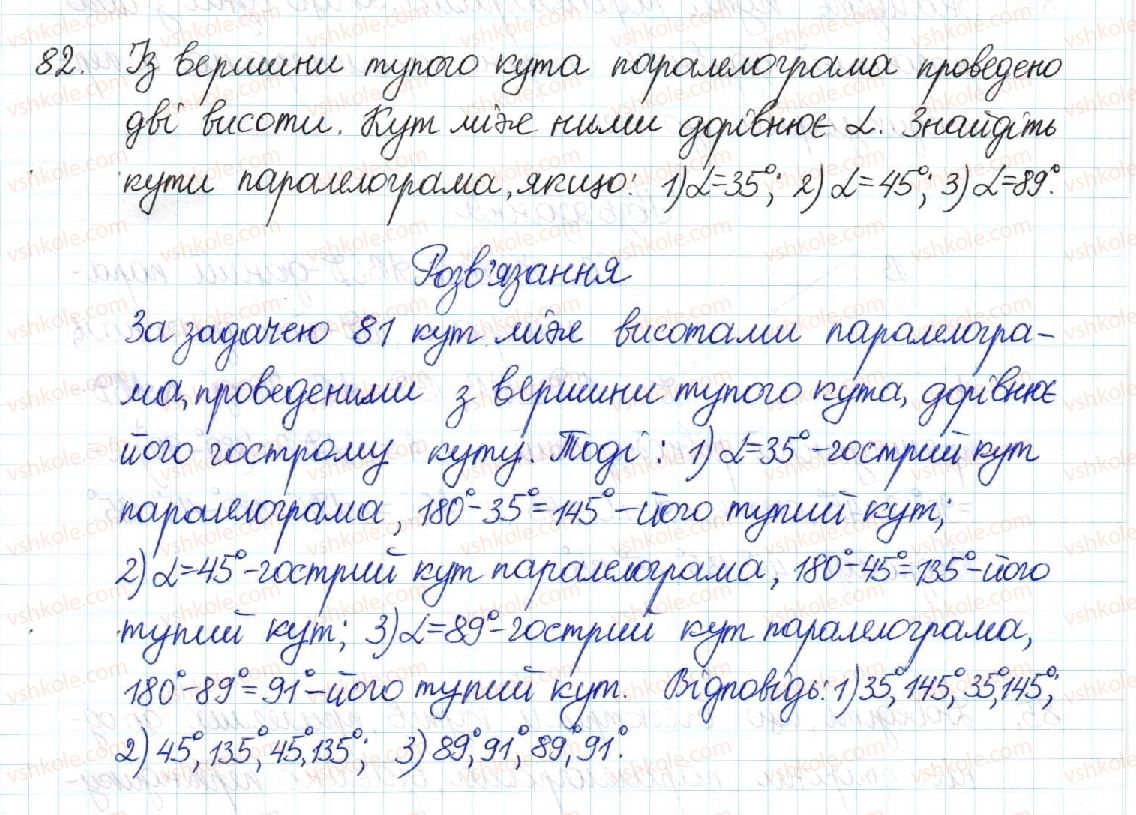 82. Із вершини тупого кута паралелограма проведено
дві висоти. Кут між ними дорівнює α. Знайдіть
кути паралелограма, якщо: 1) α=35°; 2) α=45°; 3) α=89°.
Розв'язання
За задачею 81 кут між висотами паралелогра-
ма, проведеними з вершини тупого кута, дорівнює
його гострому куту. Тоді: 1) α=35°-гострий кут
паралелограма, 180°-35°=145°-його тупий кут;
2) α=45°-гострий кут паралелограма, 180°-45°=135°-його
тупий кут; 3) α=89°-гострий кут паралелограма,
180°-89°=91°-його тупий кут. Відповідь: 1) 35°, 145°, 35°, 145°;
2) 45°, 135°, 45°, 135°; 3) 89°, 91°, 89°, 91°.